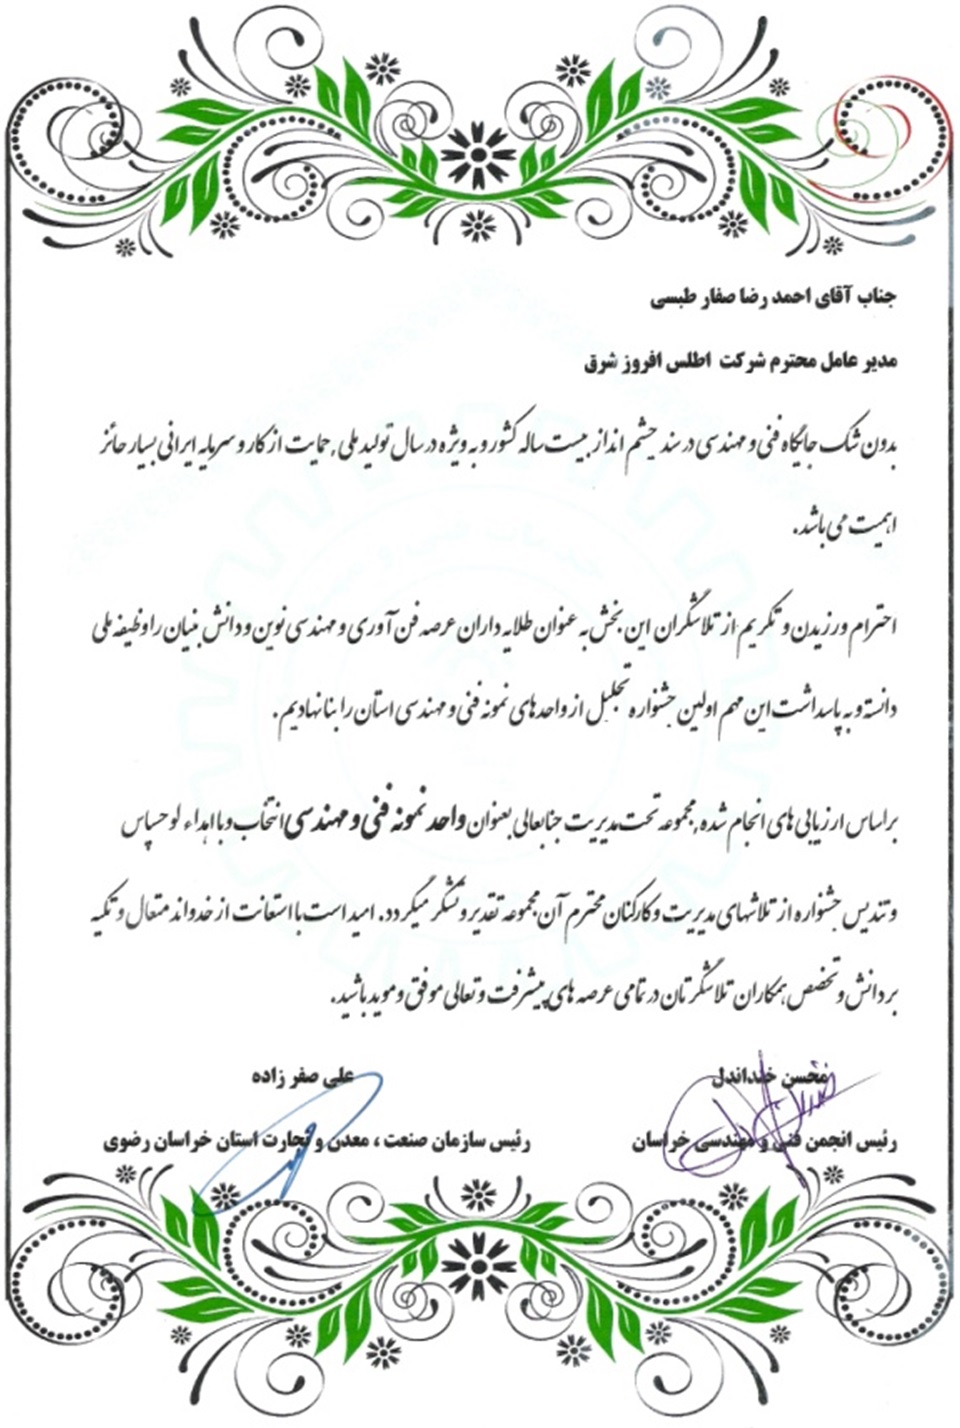 جناب آقای احمد رضا صفار طبسی
مدیر عامل محترم شرکت اطلس افروز شرق
بدون شک جایگاه فنی و مهندسی در سند چشم انداز بیست ساله کشور و به ویژه در سال تولید ملی , حمایت از کار و سرمایه ایرانی بسیار حائز
اهمیت می باشد.
احترام ورزیدن و تکریم از تلاشگران این بخش به عنوان طلایه داران عرصه فن آوری و مهندسی نوین و دانش بنیان را وظیفه ملی
دانسته و به پاسداشت این مهم اولین جشنواره تجلیل از واحدهای نمونه فنی و مهندسی استان را بنا نهادیم.
براساس ارزیابی های انجام شده , مجموعه تحت مدیریت جنابعالی بعنوان واحد نمونه فنی و مهندسی انتخاب و با اهداء لوح سپاس
و تندیس جشنواره از تلاشهای مدیریت و کارکنان محترم آن مجموعه تقدیر و تشکر میگردد. امید است با استعانت از خداوند متعال و تکیه
بر دانش و تخصص همکاران تلاشگرتان در تمامی عرصه های پیشرفت و تعالی موفق و موید باشید.
محسن خنداندل
علی صفر زاده
رئیس انجمن فنی و مهندسی خراسان
رئیس سازمان صنعت ، معدن و تجارت استان خراسان رضوی